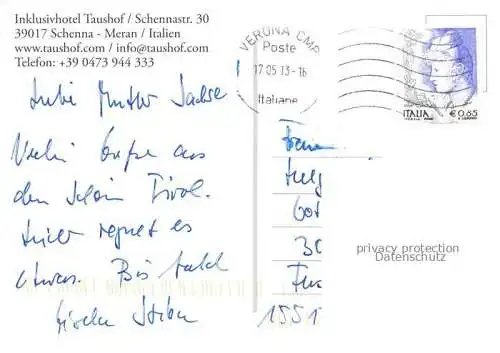 Inklusivhotel Taushof / Schennastr. 30
39017 Schenna - Meran / Italien
www.taushof.com / info@taushof.com
Telefon: +39 0473 944 333
VERONA CMP
Poste
17 05 13 - 16
Italiane
ITALIA € 0,85
Liebe Mutter
Viele Grüße aus
dem schön Tirol.
regnet es
etwas. Bis bald
Gisela
30
155
privacy protection
Datenschutz